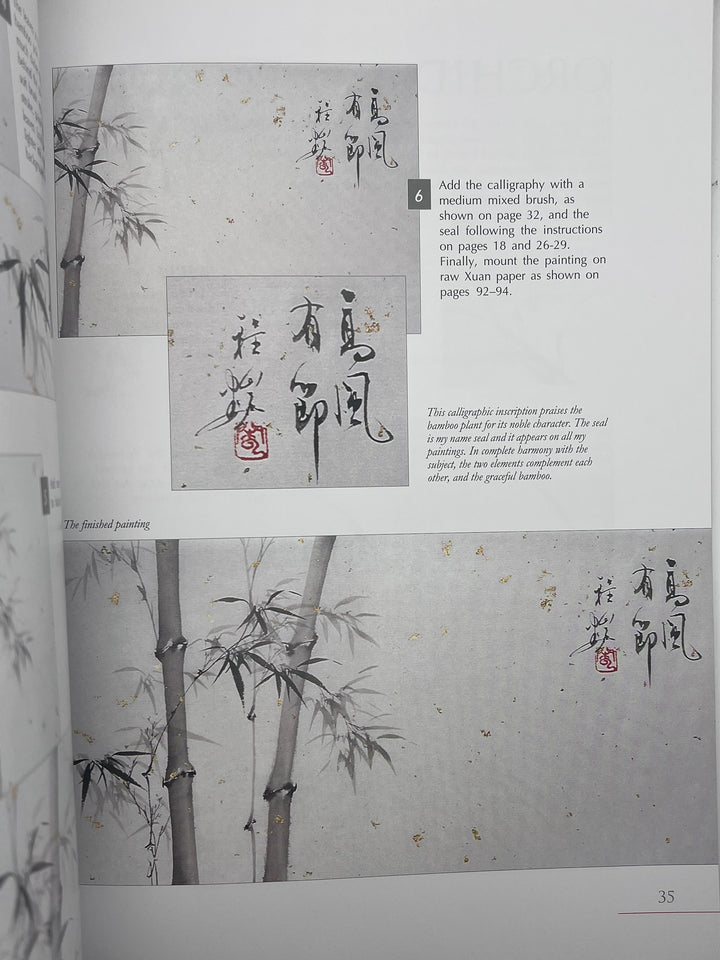 高風
有節
程
6
Add the calligraphy with a
medium mixed brush, as
shown on page 32, and the
seal following the instructions
on pages 18 and 26-29.
Finally, mount the painting on
raw Xuan paper as shown on
pages 92–94.
高風
有節
程
This calligraphic inscription praises the
bamboo plant for its noble character. The seal
is my name seal and it appears on all my
paintings. In complete harmony with the
subject, the two elements complement each
other, and the graceful bamboo.
The finished painting
高風
有節
程
35